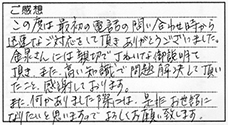 ご感想
この度は最初の電話の問い合わせ時から
迅速なご対応をして頂きありがとうございました。
倉富さんには親切で丁ねいな御説明を
頂き、また、高い知識で問題解決して頂い
たこと、感謝しております。
また、何かありました際には、是非お世話に
なりたいと思いますので よろしくお願い致します。